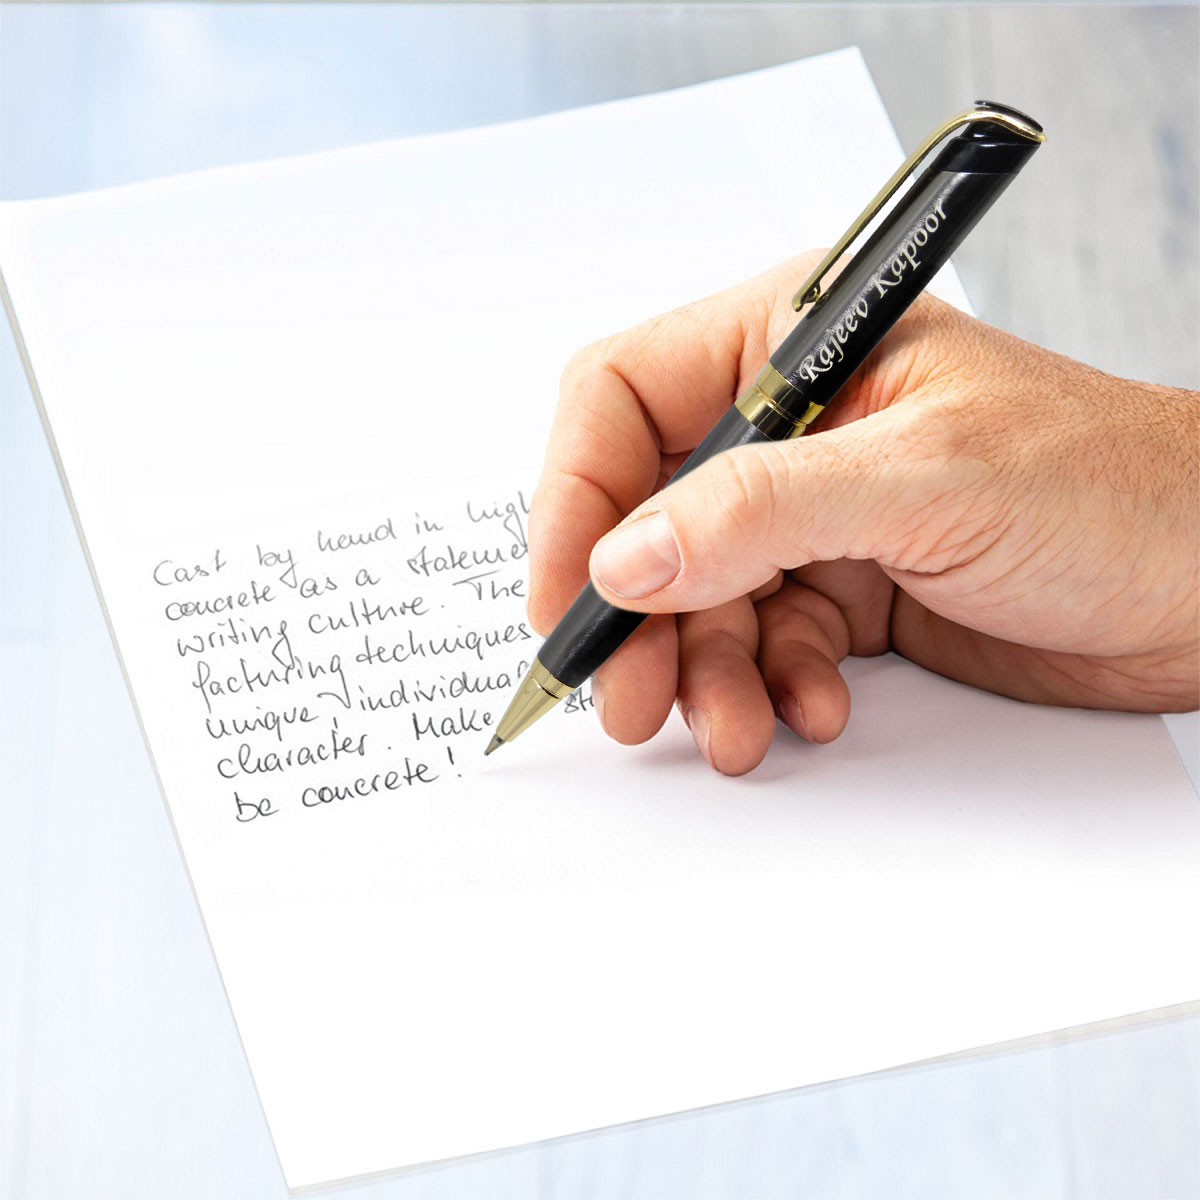 Rajeev Kapoor
Cast by hand in high
concrete as a stateme
writing culture. The
facturing techniques
unique individual
character. Make st
be concrete!